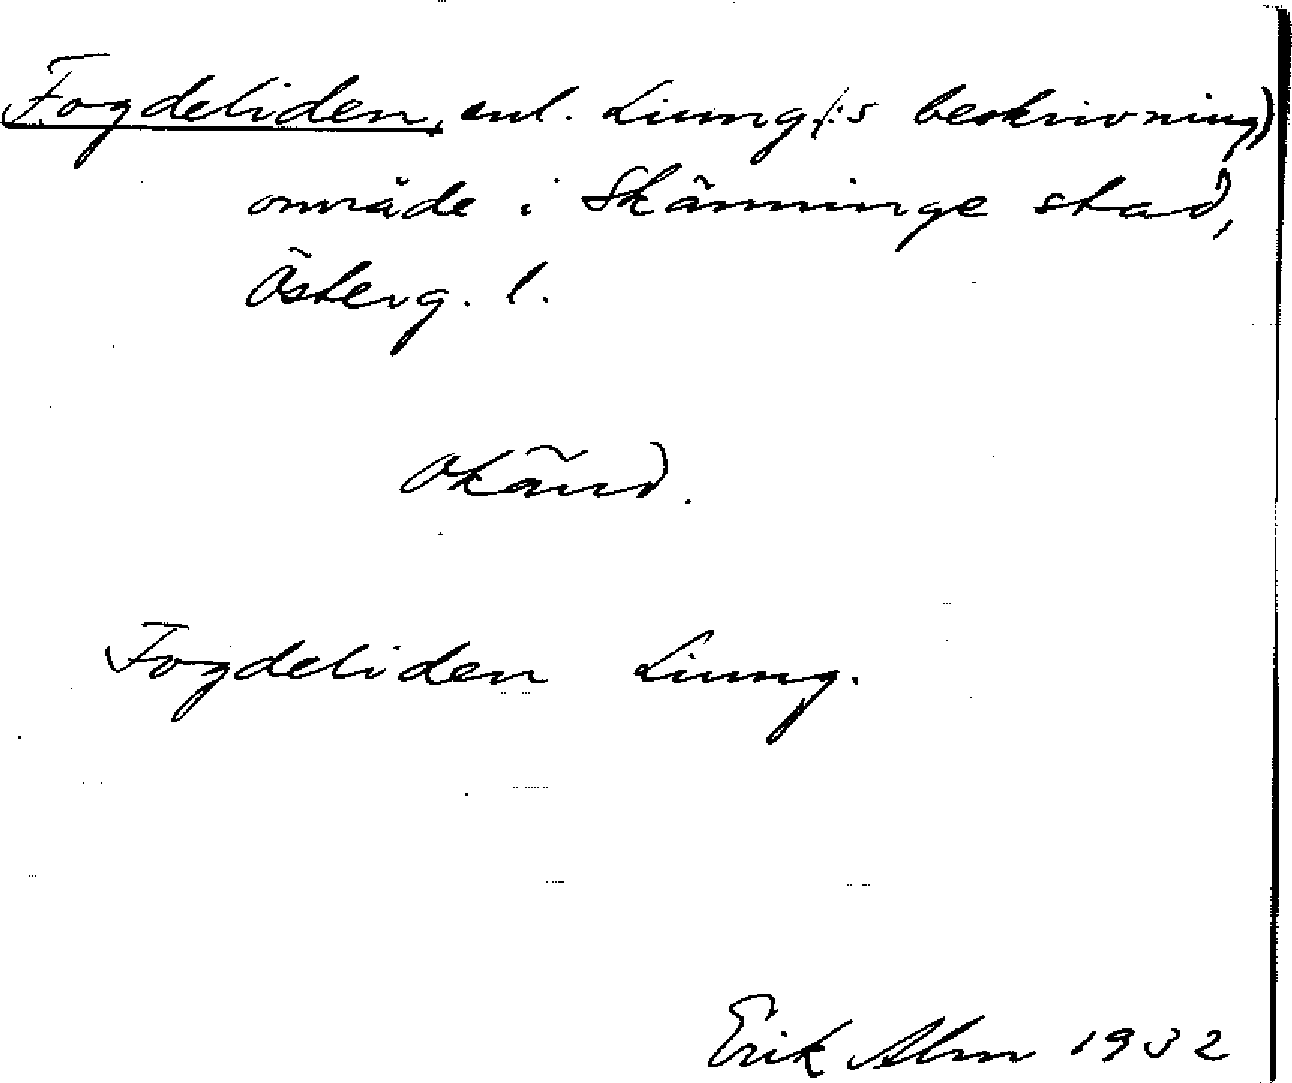 Fogdeliden, enl. Liung(:s beskrivning)
område i Skänninge stad,
Österg. l.
okänd.
Fogdeliden Liung.
Erik Alm 1932